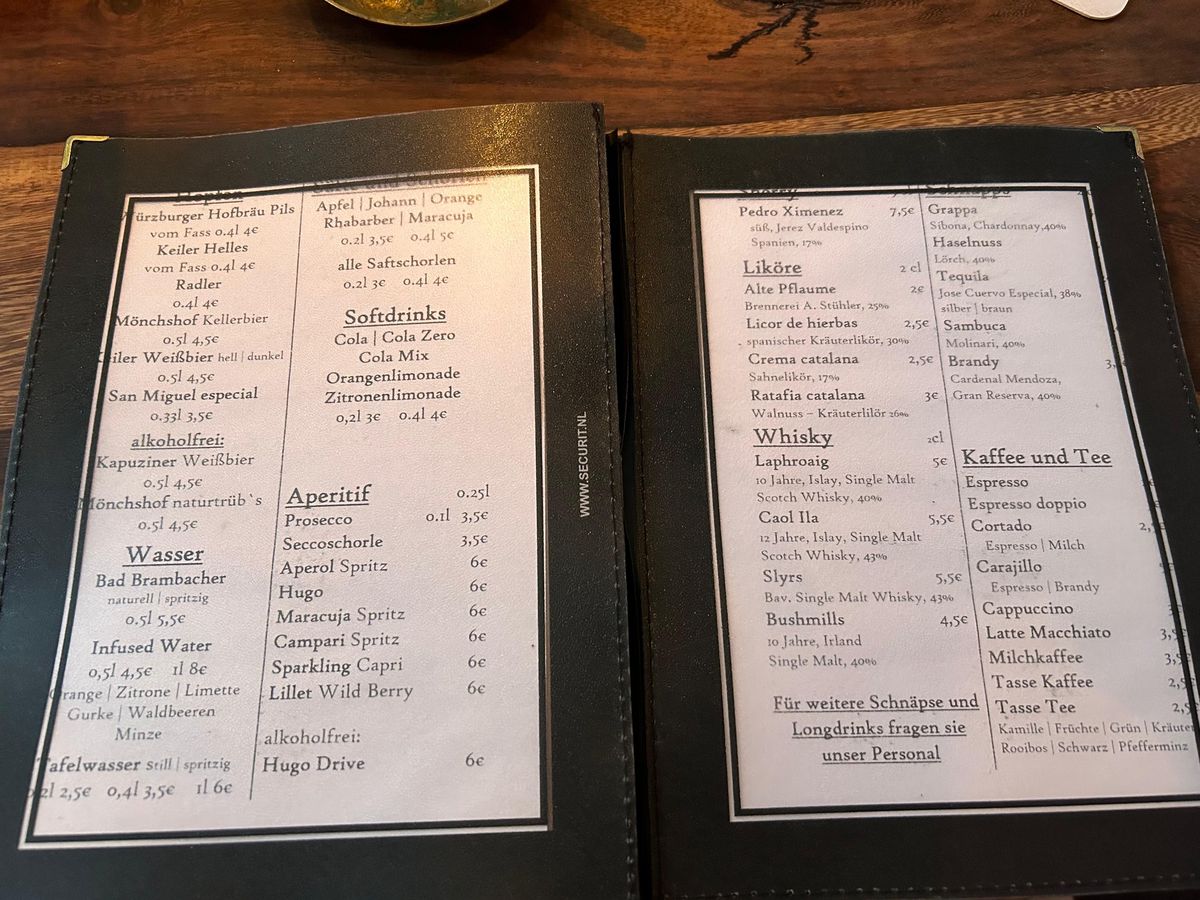 Hopfen
Würzburger Hofbräu Pils
vom Fass 0.4l 4€
Keiler Helles
vom Fass 0.4l 4€
Radler
0.4l 4€
Mönchshof Kellerbier
0.5l 4,5€
Keiler Weißbier hell | dunkel
0.5l 4,5€
San Miguel especial
0.33l 3,5€
alkoholfrei:
Kapuziner Weißbier
0.5l 4,5€
Mönchshof naturtrüb`s
0.5l 4,5€
Wasser
Bad Brambacher
naturell | spritzig
0.5l 5,5€
Infused Water
0,5l 4,5€ 1l 8€
Orange | Zitrone | Limette
Gurke | Waldbeeren
Minze
Tafelwasser Still | spritzig
0,2l 2,5€ 0,4l 3,5€ 1l 6€
Säfte und Schorlen
Apfel | Johann | Orange
Rhabarber | Maracuja
0.2l 3,5€ 0.4l 5€
alle Saftschorlen
0.2l 3€ 0.4l 4€
Softdrinks
Cola | Cola Zero
Cola Mix
Orangenlimonade
Zitronenlimonade
0,2l 3€ 0.4l 4€
Aperitif 0.25l
Prosecco 0.1l 3,5€
Seccoschorle 3,5€
Aperol Spritz 6€
Hugo 6€
Maracuja Spritz 6€
Campari Spritz 6€
Sparkling Capri 6€
Lillet Wild Berry 6€
alkoholfrei:
Hugo Drive 6€
WWW.SECURIT.NL
Sherry
Pedro Ximenez 7,5€
süß, Jerez Valdespino
Spanien, 17%
Liköre 2 cl
Alte Pflaume 2€
Brennerei A. Stühler, 25%
Licor de hierbas 2,5€
spanischer Kräuterlikör, 30%
Crema catalana 2,5€
Sahnelikör, 17%
Ratafia catalana 3€
Walnuss – Kräuterlilör 26%
Whisky 2cl
Laphroaig 5€
10 Jahre, Islay, Single Malt
Scotch Whisky, 40%
Caol Ila 5,5€
12 Jahre, Islay, Single Malt
Scotch Whisky, 43%
Slyrs 5,5€
Bav. Single Malt Whisky, 43%
Bushmills 4,5€
10 Jahre, Irland
Single Malt, 40%
Für weitere Schnäpse und
Longdrinks fragen sie
unser Personal
Schnäpse
Grappa
Sibona, Chardonnay,40%
Haselnuss
Lörch, 40%
Tequila
Jose Cuervo Especial, 38%
silber | braun
Sambuca
Molinari, 40%
Brandy 3,
Cardenal Mendoza,
Gran Reserva, 40%
Kaffee und Tee
Espresso
Espresso doppio
Cortado 2,
Espresso | Milch
Carajillo
Espresso | Brandy
Cappuccino
Latte Macchiato 3,5
Milchkaffee 3,5
Tasse Kaffee 2,5
Tasse Tee 2,5
Kamille | Früchte | Grün | Kräuter
Rooibos | Schwarz | Pfefferminz